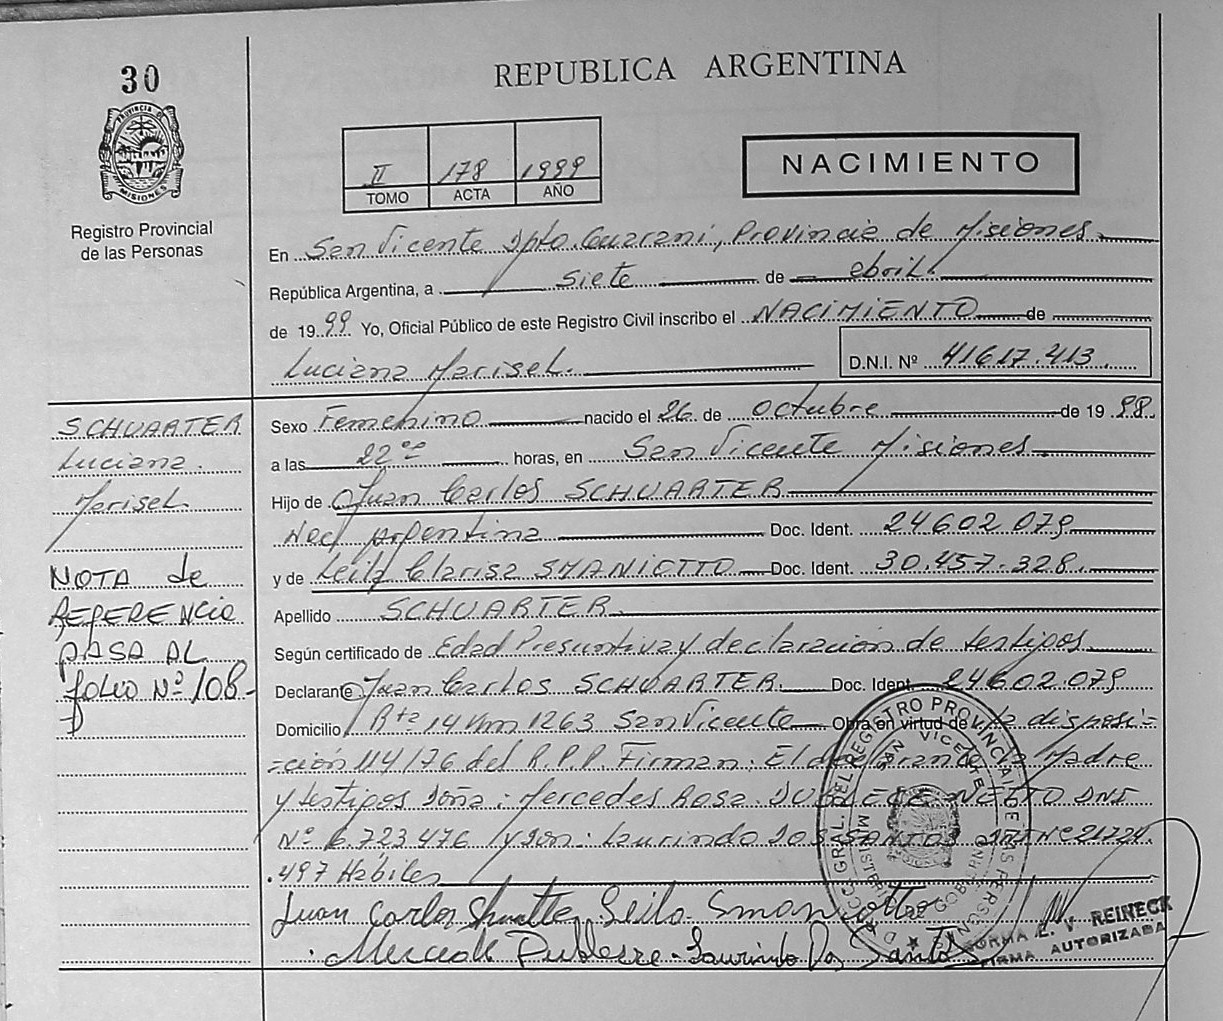 30
REPUBLICA ARGENTINA
PROVINCIA D
MISIONES
Registro Provincial
de las Personas
II 178 1999
TOMO ACTA AÑO
NACIMIENTO
En San Vicente Dpto. Guarani, Provincia de Misiones
República Argentina, a siete de abril
de 1999 Yo, Oficial Público de este Registro Civil inscribo el NACIMIENTO de
Luciana Marisel. D.N.I. Nº 41617.413
SCHUARTER
Luciana.
Marisel.
NOTA de
REFERENCIA
PASA AL
folio Nº 108
Sexo Femenino nacido el 26 de octubre de 1998.
a las 22 horas, en San Vicente Misiones
Hijo de Juan Carlos SCHUARTER
Nac Argentina Doc. Ident. 24602.079
y de Leila Clarisa SMANIOTTO Doc. Ident. 30.457.328.
Apellido SCHUARTER
Según certificado de Edad Presuntiva y declaración de testigos
Declarante Juan Carlos SCHUARTER. Doc. Ident. 24602079
Domicilio Rta 14 Km 1263 San Vicente Obra en virtud de la disposi=
=ción 114/76 del R.P.P. Firman: El declarante la Madre
y testigos Doña: Mercedes Rosa DNI
Nº 6.723.476 y Don: Laurindo DOS SANTOS DNI Nº 21724
.497 Hábiles
Juan Carlos Leila Smaniotto
Laurindo Dos Santos
GRAL. DEL REGISTRO PROVINCIAL DE LAS PERSONAS
SAN VICENTE
NORMA E. V. REINECK
FIRMA AUTORIZADA